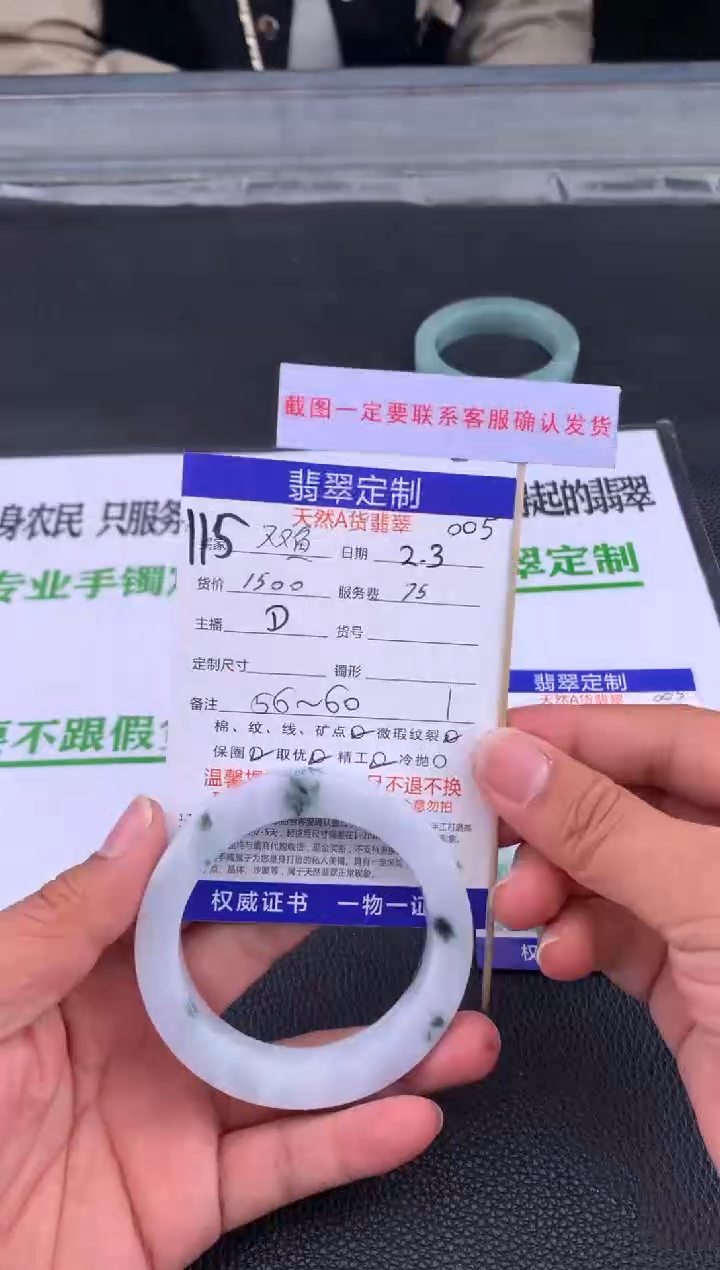 截图一定要联系客服确认发货
翡翠定制
天然A货翡翠
005
115
双鱼
日期 2.3
货价 1500 服务费 75
主播 D 货号
定制尺寸 镯形
备注 56~60 1
棉、纹、线、矿点 微瑕纹裂
保圈 取优 精工 冷抛
不退不换
权威证书 一物一证
身农民 只服务
专业手镯
要不跟假
起的翡翠
翠定制
翡翠定制
天然A货翡翠
005
权